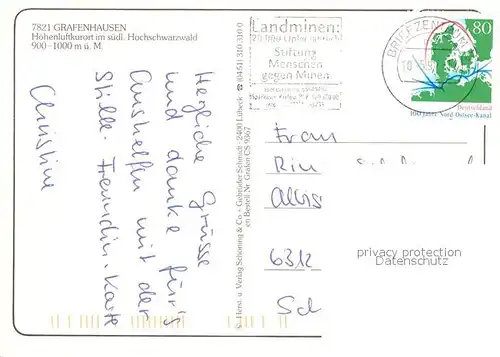 7821 GRAFENHAUSEN
Höhenluftkurort im südl. Hochschwarzwald
900 - 1000 m ü. M.
Herzliche Grüsse
und danke für's
Aushelfen mit der
Stille. Freundin-Karte
Christine
© Herst. u. Verlag Schöning & Co · Gebrüder Schmidt · 2400 Lübeck ☎ (04 51) 3 10 31 0
Landminen:
Stiftung
Menschen
gegen Minen
BRIEFZENTRUM
80
Deutschland
100 Jahre Nord-Ostsee-Kanal
Frau
Albis
6312
privacy protection
Datenschutz